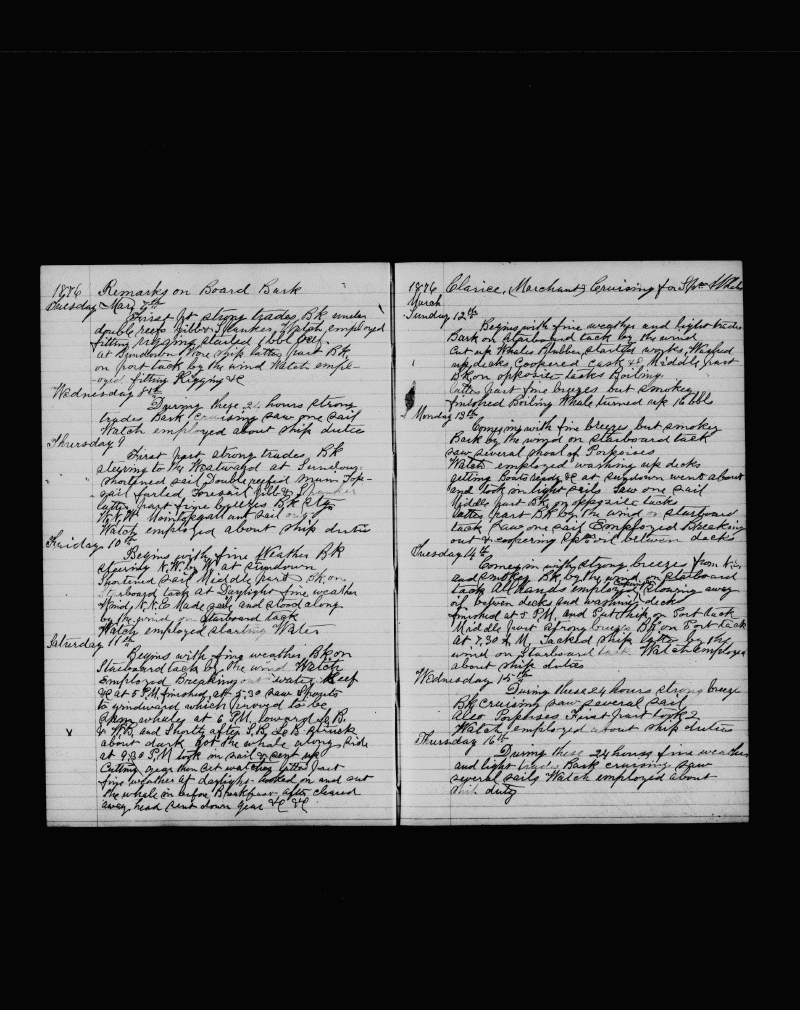 1876 Remarks on Board Bark
Tuesday Mar 7th
First pt strong trades, Bk under
double reefs Jibb & Spanker, Watch employed
fitting rigging started 1 bbl beef
at Sundown Wore Ship latter part Bk
on port tack by the wind Watch empl-
oyed fitting Rigging &c
Wednesday 8th
During these 24 hours strong
trades Bark Cruising saw one sail
Watch employed about ship duties
Thursday 9
First part strong trades, Bk
steering to the Westward at Sundown
shortened sail Double reefed Main Top-
sail furled Foresail Jibb &
latter part fine breezes Bk
Maintopgallant sail
Watch employed about ship duties
Friday 10th
Begins with fine Weather Bk
steering N.W. by W. at sundown
Shortened sail Middle part Bk on
Starboard tack at Daylight fine weather
Wind, N.N.E. Made sail and stood along
by the wind on Starboard tack
Watch employed starting Water
Saturday 11th
Begins with fine weather, Bk on
Starboard tack by the wind Watch
Employed Breaking out water Beef
&c at 5 P.M. finished at 5.30 saw Spouts
to windward which proved to be
Sperm whales at 6 P.M. lowered S.B.
& W.B. and Shortly after S.B. L.B. struck
about dark got the whale along side
at 9.30 P.M. took in sail & sent up
Cutting gear then set watches latter part
fine weather at daylight hooked on and cut
the whale in before Breakfast after cleared
away head sent down gear &c &c
1876 Clarice, Merchant, Cruising for Sperm Whale
March
Sunday 12th
Begins with fine weather and light trades
Bark on starboard tack by the wind
Cut up Whales Blubber, started works, Washed
up decks, Coopered Cask &c Middle part
Bk on opposite tacks Boiling
latter part fine breezes but smokey
finished Boiling Whale turned up 16 bbls
Monday 13th
Comes in with fine breezes but smokey
Bark by the wind on starboard tack
saw several shoal of Porpoises
Watch employed washing up decks
getting Boats ready &c at sundown went about
and took in light sails Saw one sail
Middle part Bk on opposite tack
latter part Bk by the wind on starboard
tack Saw one sail Employed Breaking
out & coopering Sp oil between decks
Tuesday 14th
Comes in with strong breezes from N.
and smokey Bk by the wind on starboard
tack All hands employed stowing away
oil between decks and washing decks
finished at 5 P.M. and Put ship on Port tack
Middle part strong breeze Bk on Port tack
at 7.30 A.M. Tacked ship latter by the
wind on Starboard tack Watch employed
about ship duties
Wednesday 15th
During these 24 hours strong breeze
Bk cruising saw several sail
also Porpoises First part took 2
Watch employed about ship duties
Thursday 16th
During these 24 hours, fine weather
and light trades Bark cruising saw
several sails Watch employed about
ship duty